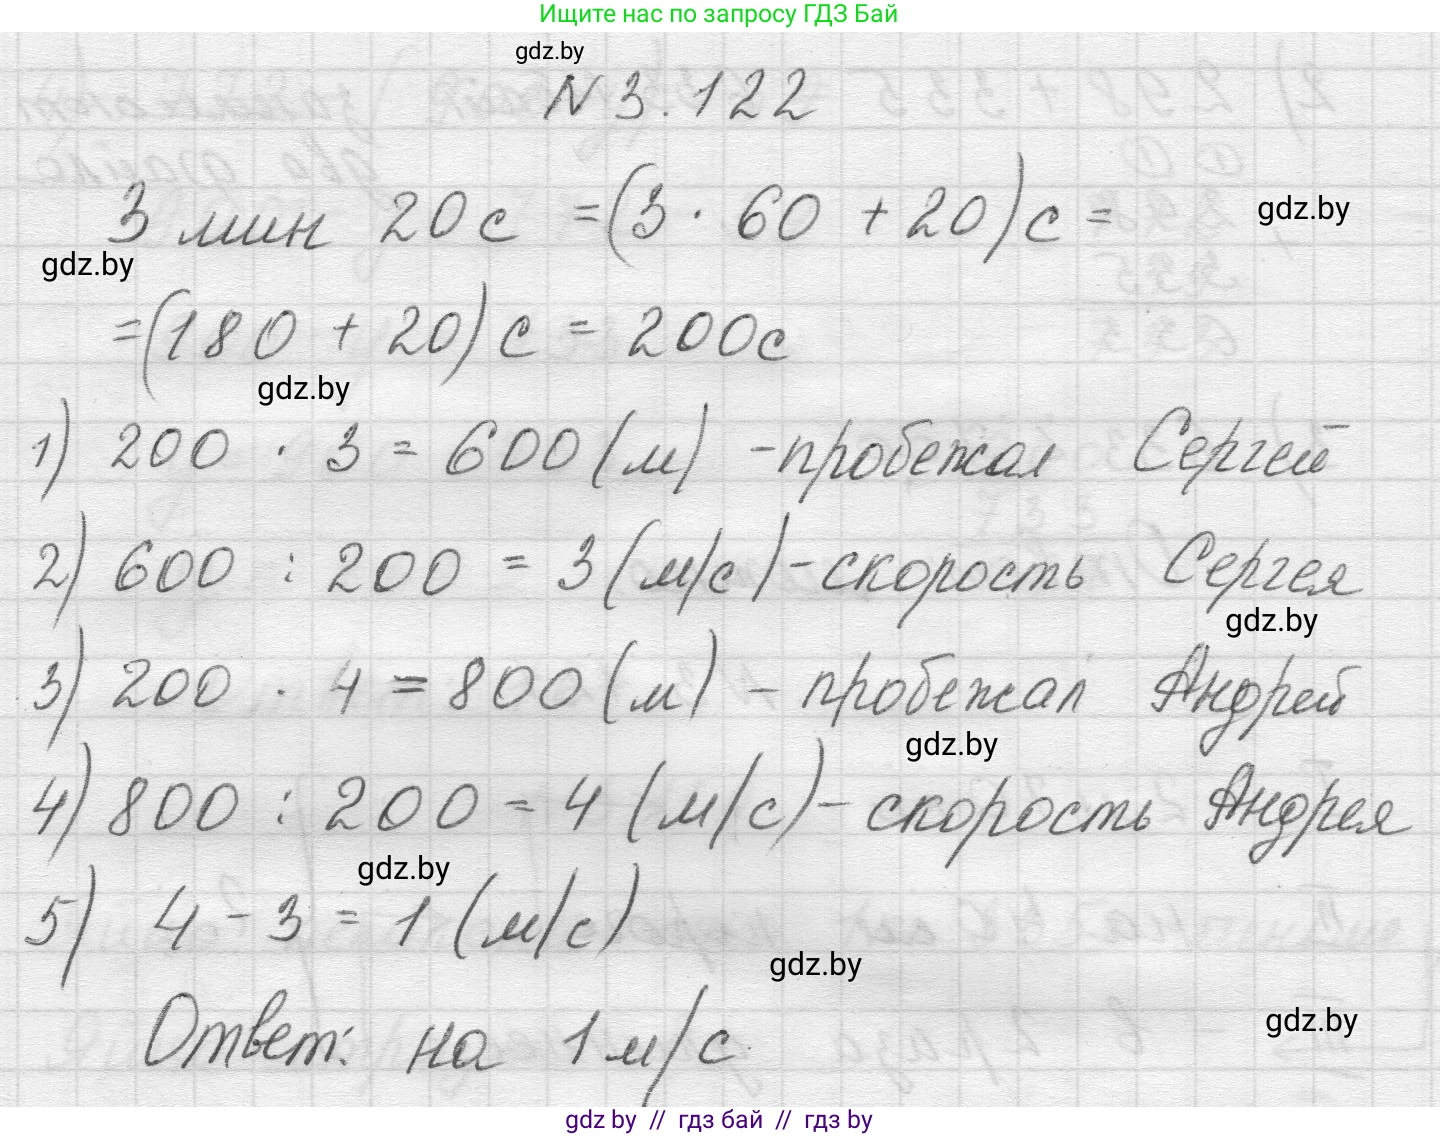 Ищите нас по запросу ГДЗ Бай
gdz.by
N 3.122
3 мин 20 с = (3 · 60 + 20) с =
gdz.by
gdz.by
= (180 + 20) с = 200с
gdz.by
1) 200 · 3 = 600 (м) - пробежал Сергей
2) 600 : 200 = 3 (м/с) - скорость Сергея
gdz.by
3) 200 · 4 = 800 (м) - пробежал Андрей
gdz.by
4) 800 : 200 = 4 (м/с) - скорость Андрея
gdz.by
5) 4 - 3 = 1 (м/с)
gdz.by
gdz.by
Ответ: на 1 м/с
gdz.by // гдз бай // гдз by